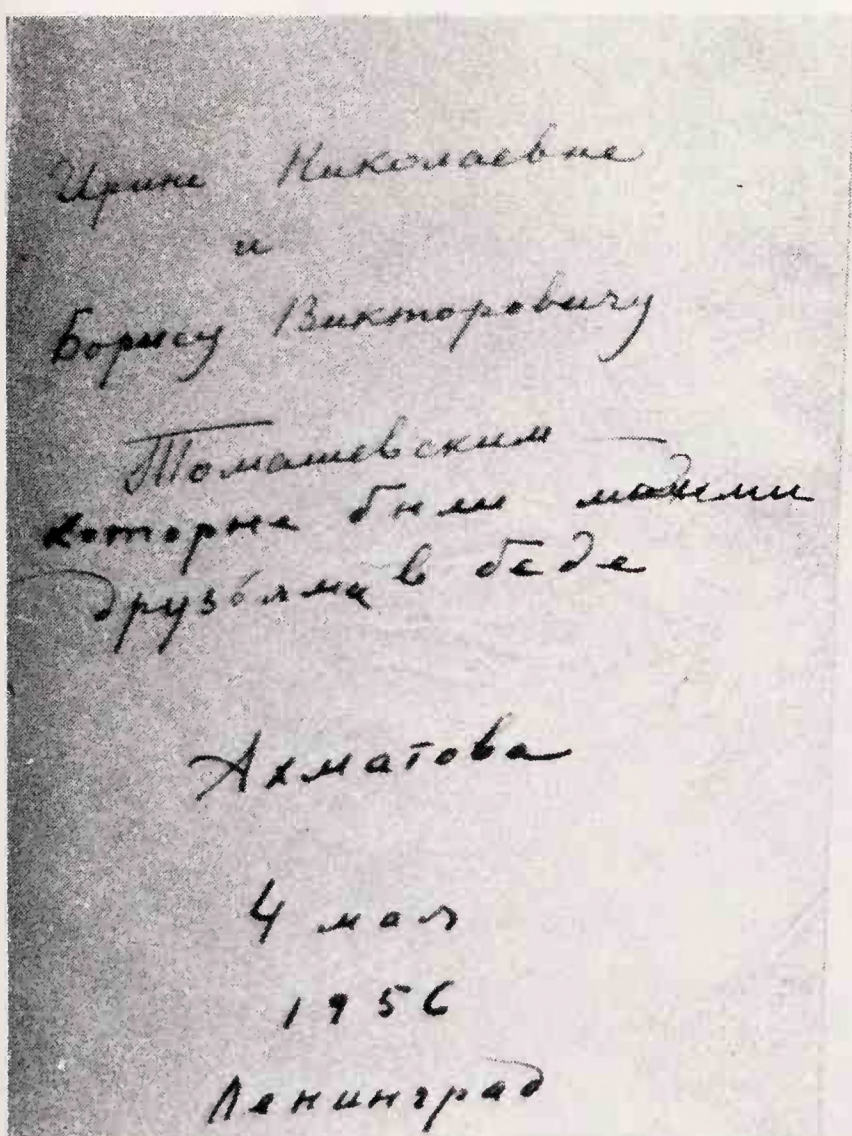 Ирине Николаевне
и
Борису Викторовичу
Томашевским —
которые были моими
друзьями в беде
Ахматова
4 мая
1956
Ленинград